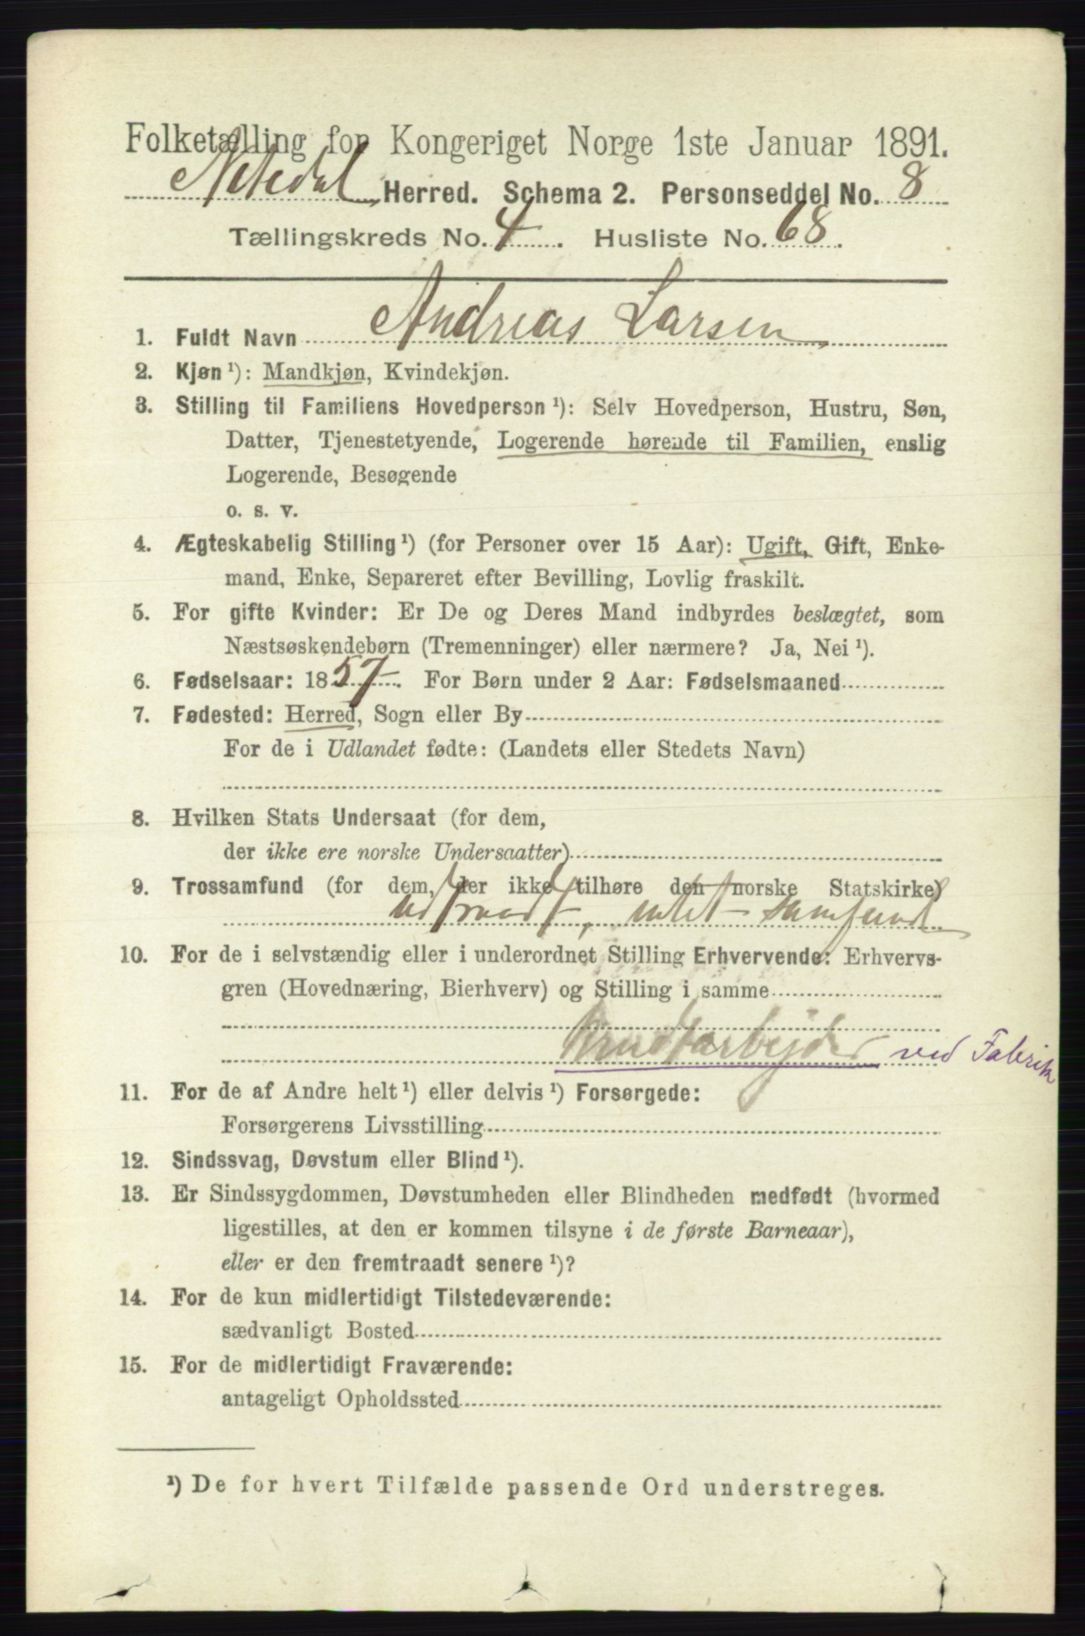 Folketælling for Kongeriget Norge 1ste Januar 1891.
Nitedal Herred. Schema 2. Personseddel No. 8
Tællingskreds No. 4. Husliste No. 68.
1. Fuldt Navn Andreas Larsen
2. Kjøn ¹): Mandkjøn, Kvindekjøn.
3. Stilling til Familiens Hovedperson ¹): Selv Hovedperson, Hustru, Søn,
Datter, Tjenestetyende, Logerende hørende til Familien, enslig
Logerende, Besøgende
o. s. v.
4. Ægteskabelig Stilling ¹) (for Personer over 15 Aar): Ugift, Gift, Enke-
mand, Enke, Separeret efter Bevilling, Lovlig fraskilt.
5. For gifte Kvinder: Er De og Deres Mand indbyrdes beslægtet, som
Næstsøskendebørn (Tremenninger) eller nærmere? Ja, Nei ¹).
6. Fødselsaar: 1857. For Børn under 2 Aar: Fødselsmaaned
7. Fødested: Herred, Sogn eller By
For de i Udlandet fødte: (Landets eller Stedets Navn)
8. Hvilken Stats Undersaat (for dem,
der ikke ere norske Undersaatter)
9. Trossamfund (for dem, der ikke tilhøre den norske Statskirke)
udtraadt, intet samfund
10. For de i selvstændig eller i underordnet Stilling Erhvervende: Erhvervs-
gren (Hovednæring, Bierhverv) og Stilling i samme
Krudtarbejder ved Fabrik
11. For de af Andre helt ¹) eller delvis ¹) Forsørgede:
Forsørgerens Livsstilling
12. Sindssvag, Døvstum eller Blind ¹).
13. Er Sindssygdommen, Døvstumheden eller Blindheden medfødt (hvormed
ligestilles, at den er kommen tilsyne i de første Barneaar),
eller er den fremtraadt senere ¹)?
14. For de kun midlertidigt Tilstedeværende:
sædvanligt Bosted
15. For de midlertidigt Fraværende:
antageligt Opholdssted
¹) De for hvert Tilfælde passende Ord understreges.